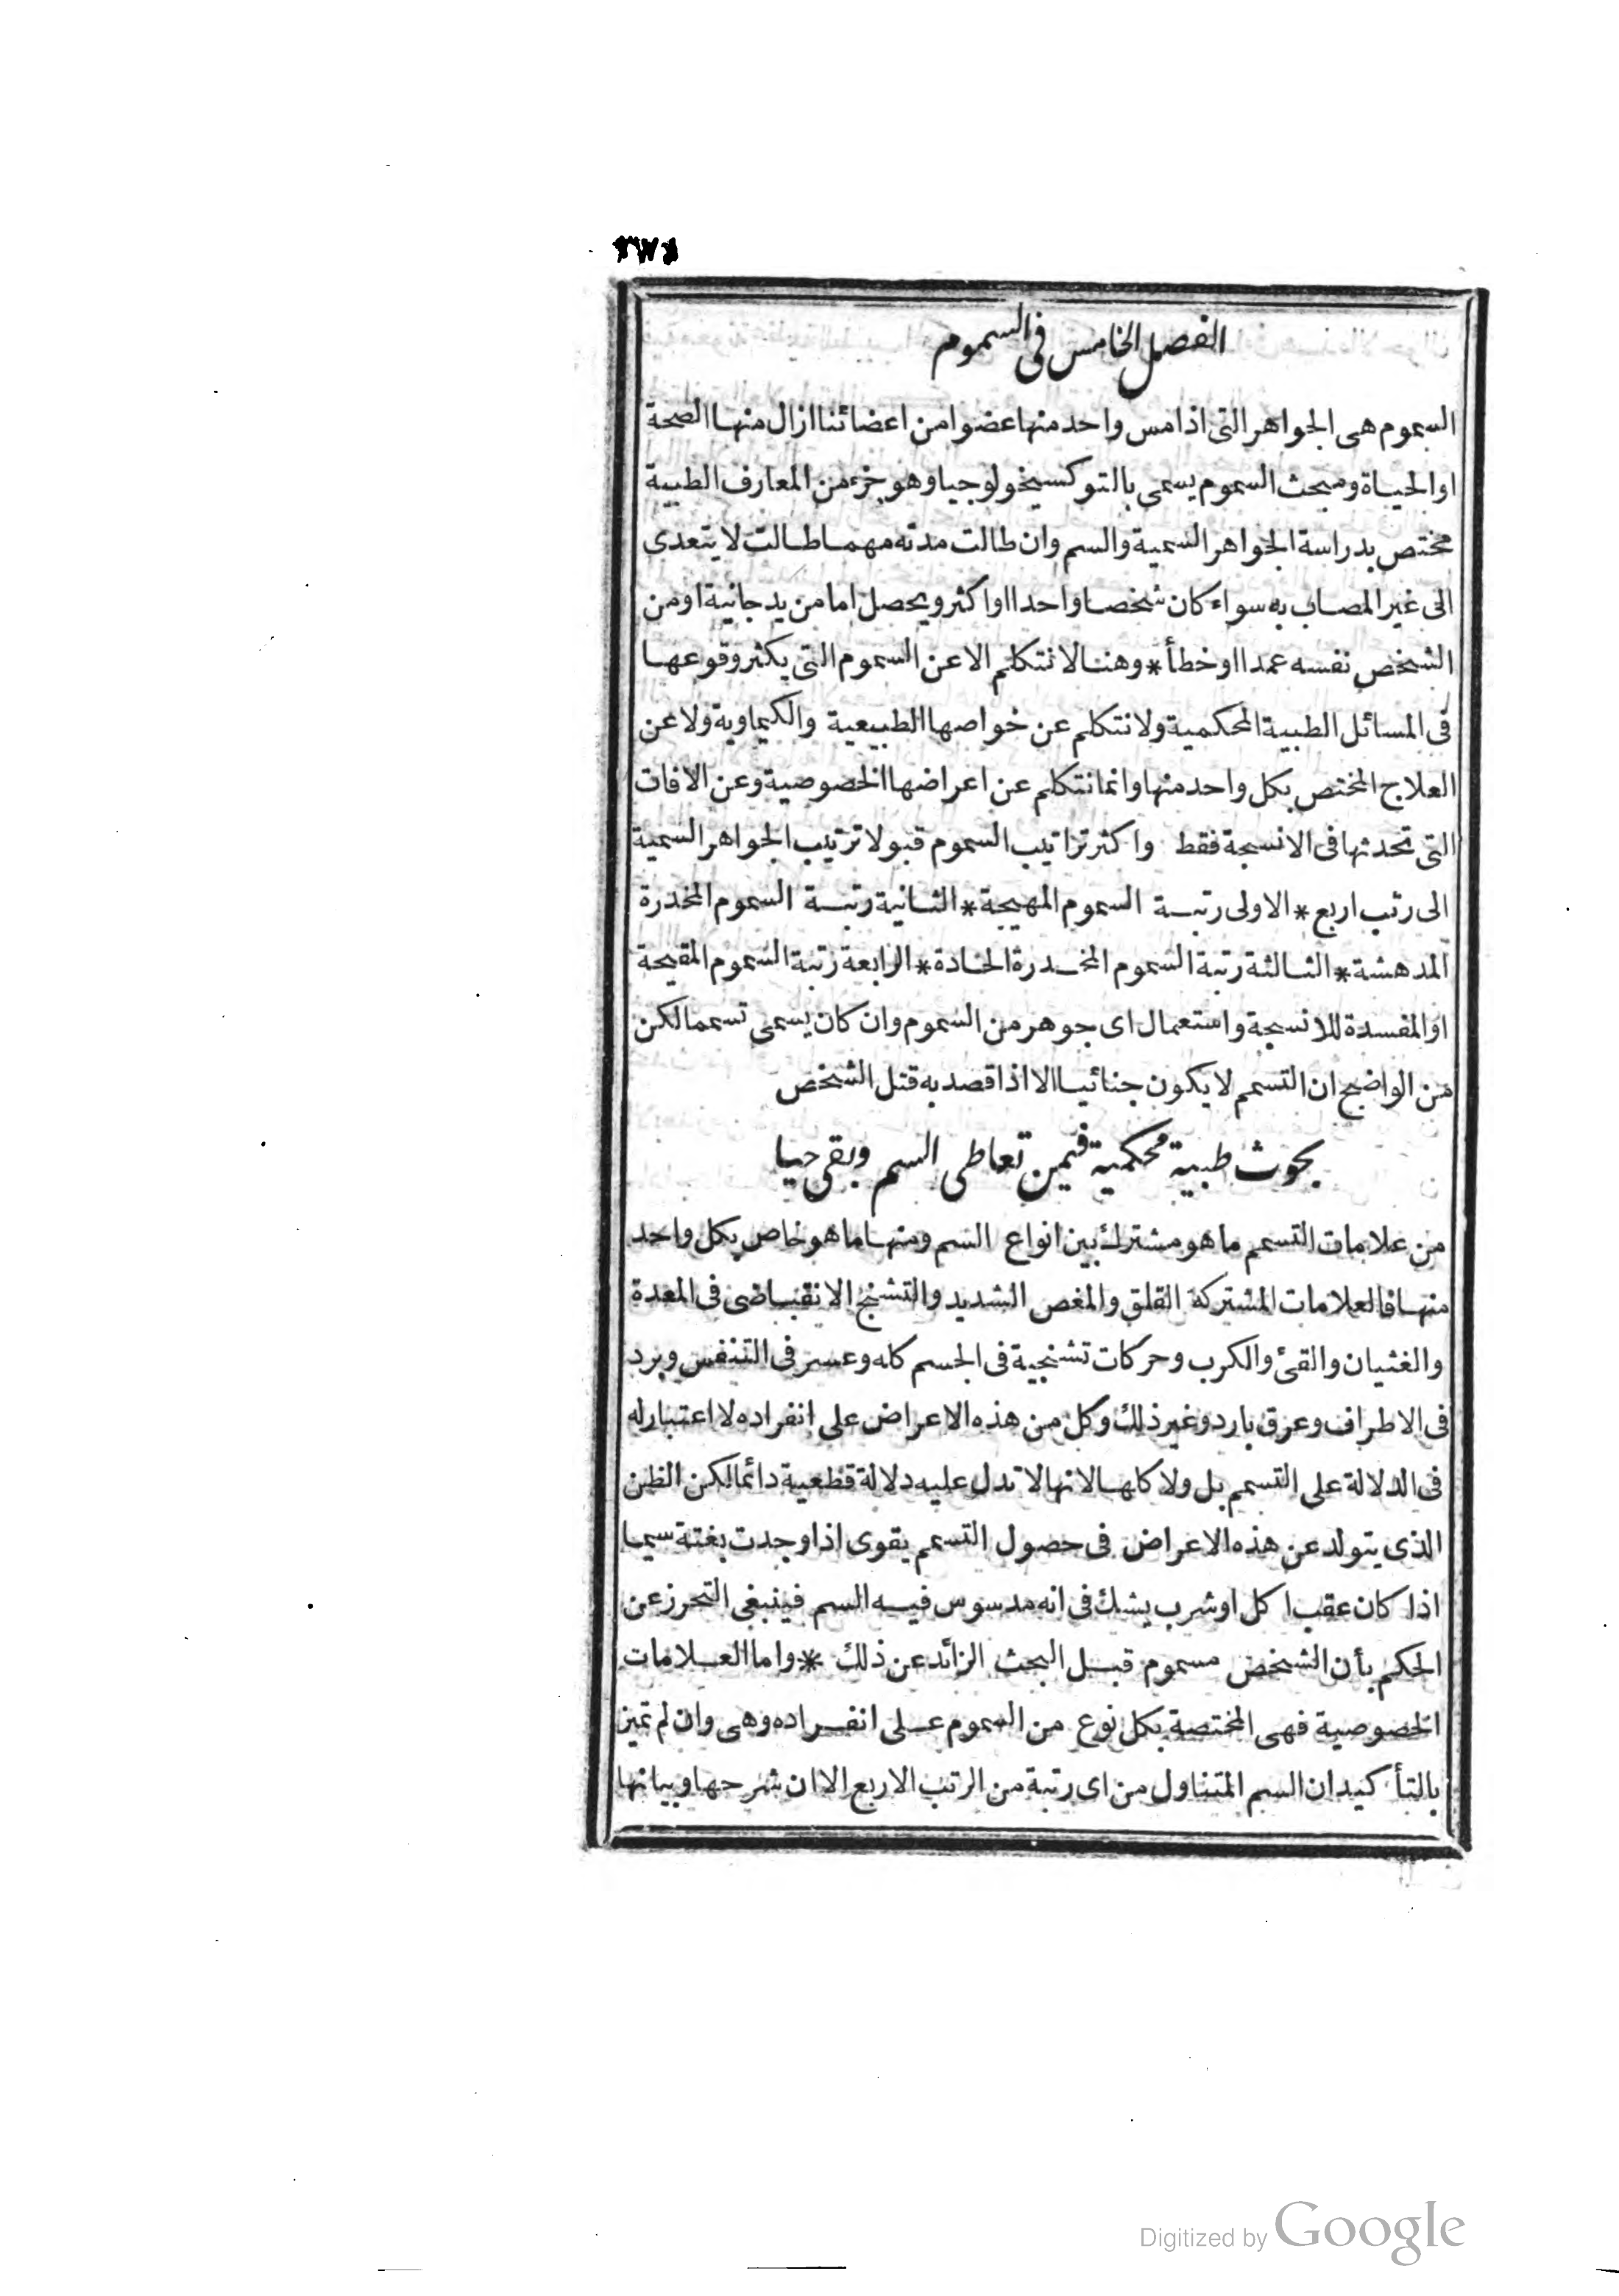 الفصل الخامس فى السموم
السموم هى الجواهر التى اذا مس واحد منها عضوا من اعضائنا ازال منها الصحة
او الحياة ومبحث السموم يسمى بالتوكسيخولوجيا وهو جزء من المعارف الطبية
مختص بدراسة الجواهر السمية والسم وان طالت مدته مهما طالت لا يتعدى
الى غير المصاب به سواء كان شخصا واحدا او اكثر ويحصل اما من يد جانية او من
الشخص نفسه عمدا او خطأ * وهنا لا نتكلم الا عن السموم التى يكثر وقوعها
فى المسائل الطبية المحكمية ولا نتكلم عن خواصها الطبيعية والكيماوية ولا عن
العلاج المختص بكل واحد منها وانما نتكلم عن اعراضها الخصوصية وعن الافات
التى تحدثها فى الانسجة فقط واكثر تراتيب السموم قبولا ترتيب الجواهر السمية
الى رتب اربع * الاولى رتبة السموم المهيجة * الثانية رتبة السموم المخدرة
المدهشة * الثالثة رتبة السموم المخدرة الحادة * الرابعة رتبة السموم المقيحة
او المفسدة للانسجة واستعمال اى جوهر من السموم وان كان يسمى تسمما لكن
من الواضح ان التسمم لا يكون جنائيا الا اذا قصد به قتل الشخص
بحوث طبية محكمية فيمن تعاطى السم وبقى حيا
من علامات التسمم ما هو مشترك بين انواع السم ومنها ما هو خاص بكل واحد
منها فالعلامات المشتركة القلق والمغص الشديد والتشنج الانقباضى فى المعدة
والغثيان والقئ والكرب وحركات تشنجية فى الجسم كله وعسر فى التنفس وبرد
فى الاطراف وعرق بارد وغير ذلك وكل من هذه الاعراض على انفراده لا اعتبار له
فى الدلالة على التسمم بل ولا كلها لانها لا تدل عليه دلالة قطعية دائما لكن الظن
الذى يتولد عن هذه الاعراض فى حصول التسمم يقوى اذا وجدت بغتة سيما
اذا كان عقب اكل او شرب يشك فى انه مدسوس فيه السم فينبغى التحرز عن
الحكم بأن الشخص مسموم قبل البحث الزائد عن ذلك * واما العلامات
الخصوصية فهى المختصة بكل نوع من السموم على انفراده وهى وان لم تميز
بالتأكيد ان السم المتناول من اى رتبة من الرتب الاربع الا ان شرحها وبيانها
Digitized by Google